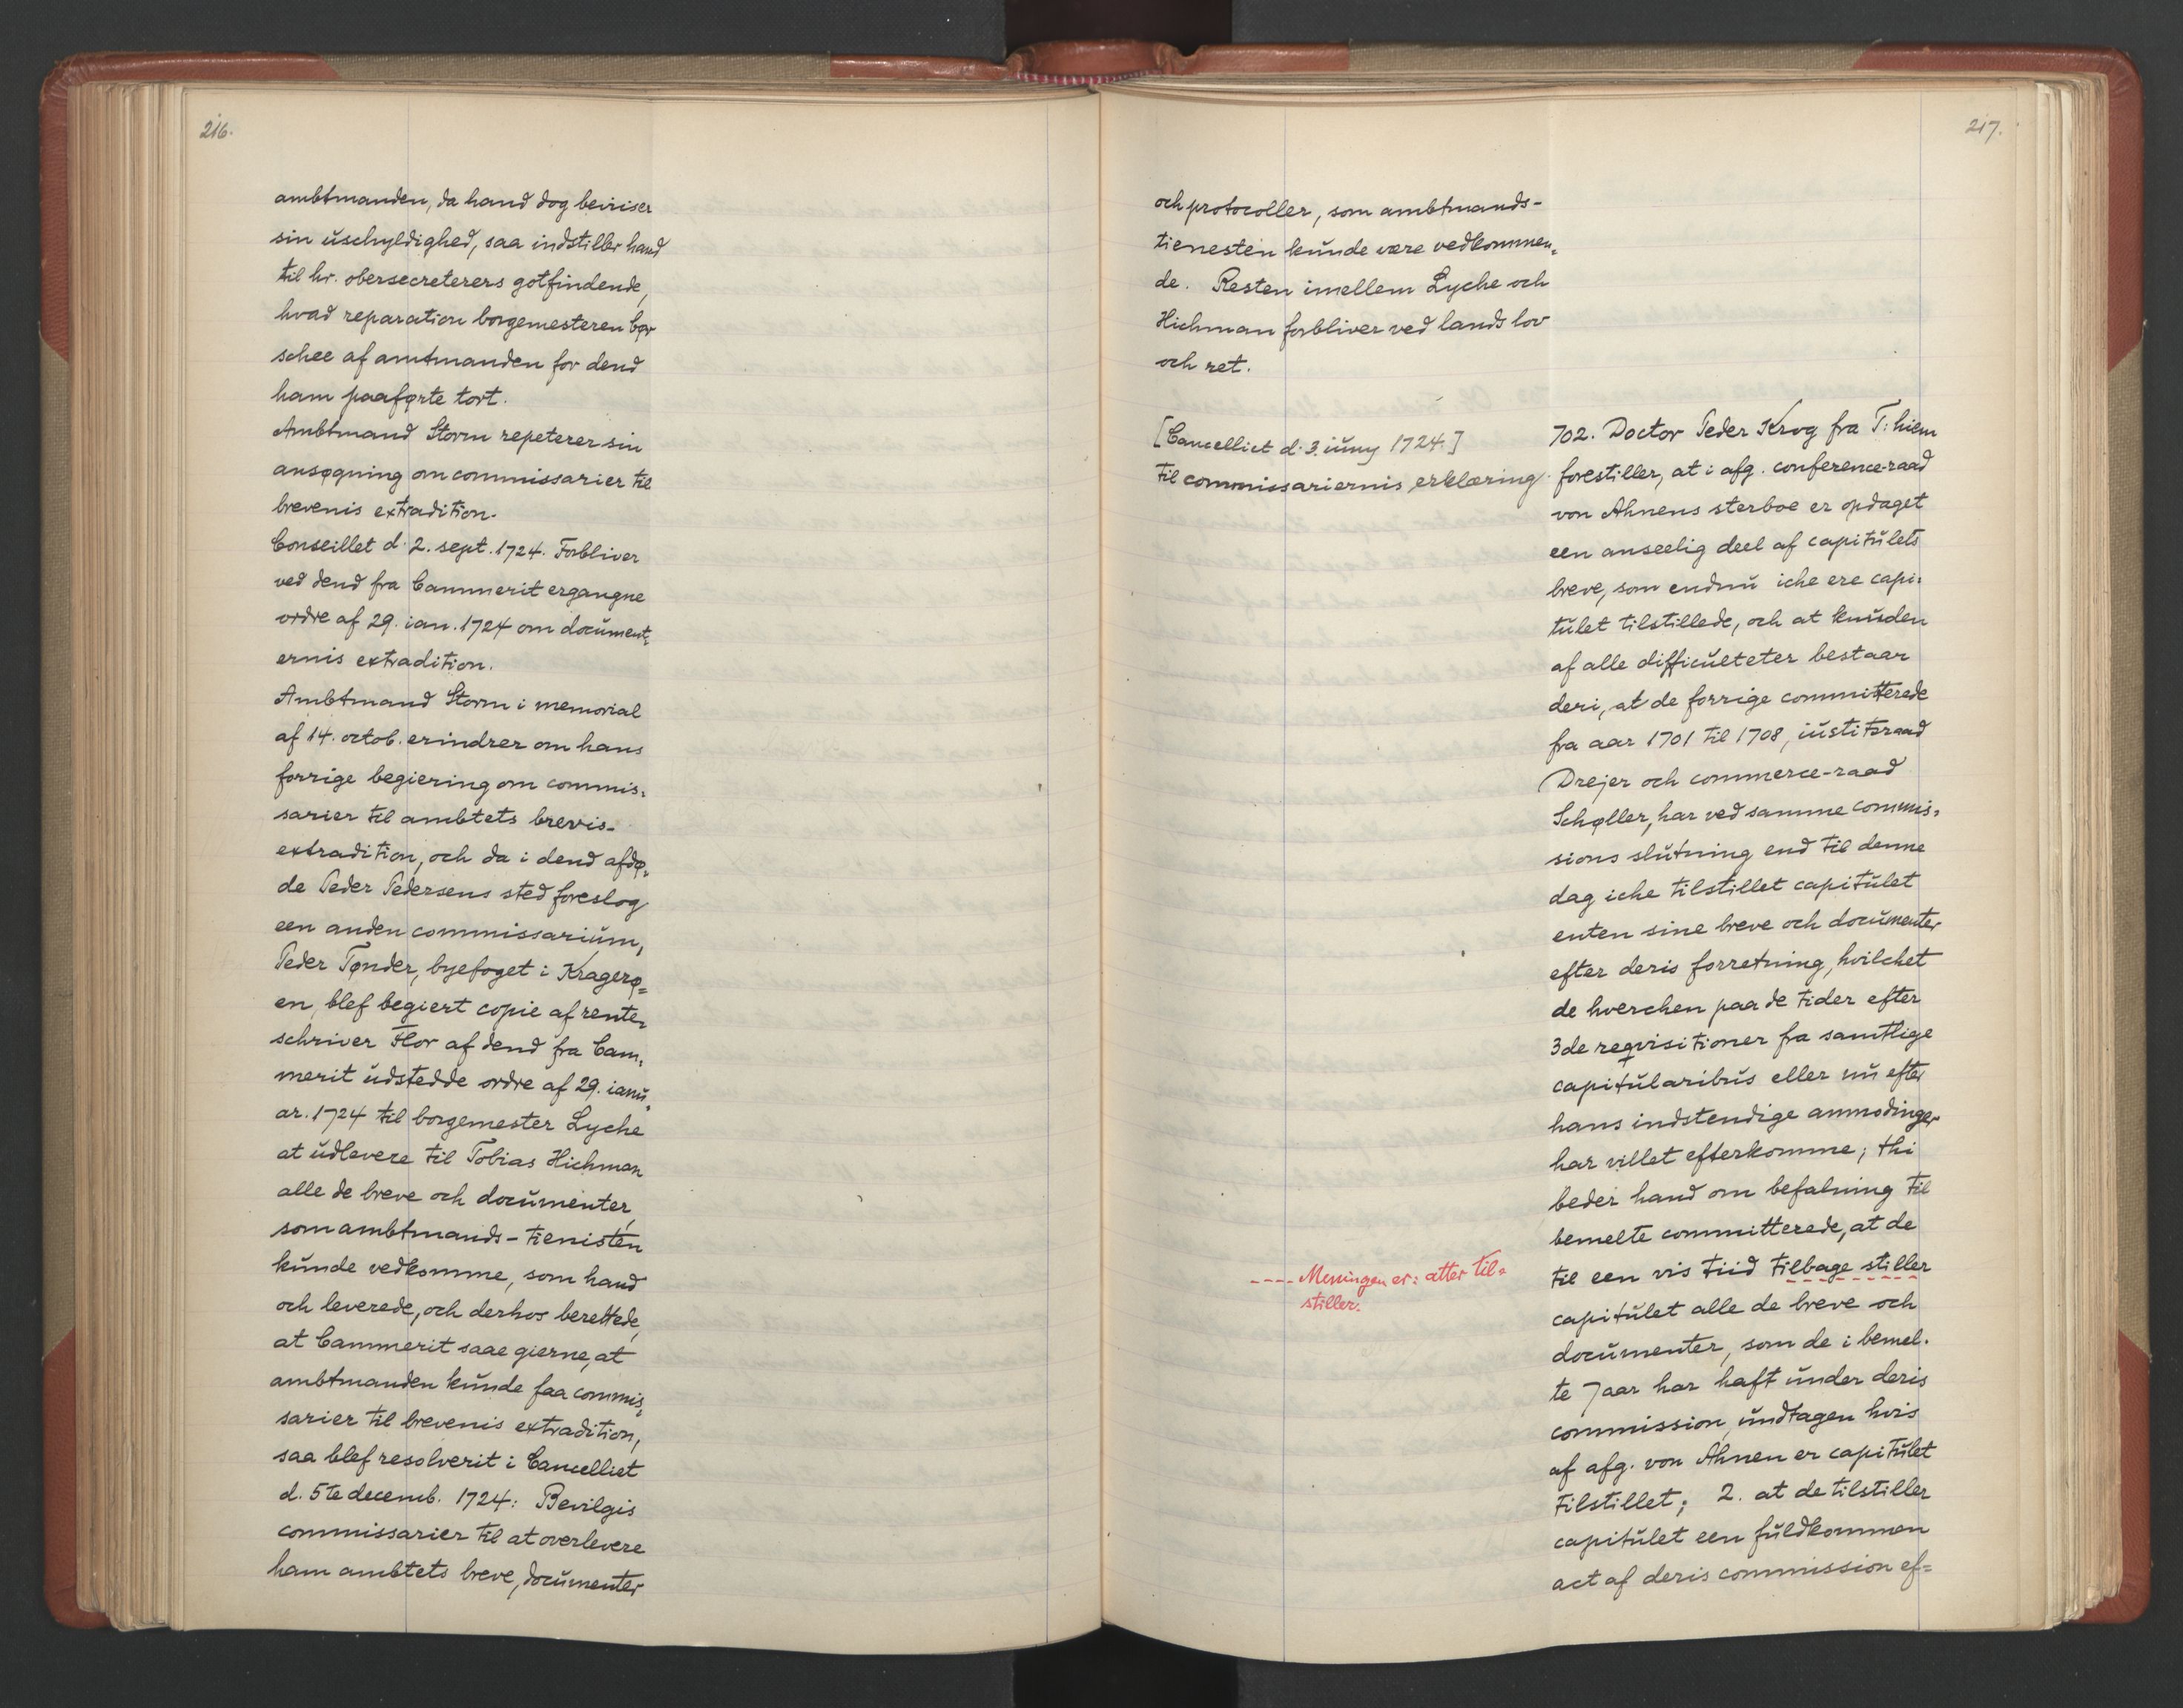 216.
ambtmanden, da hand dog beviiser
sin uschyldighed, saa indstiller hand
til hr. obersecreterers gotfindende,
hvad reparation borgemesteren bør
schee af amtmanden for dend
ham paaførte tort.
Ambtmand Storm repeterer sin
ansøgning om commissarier til
brevenis extradition.
Conseillet d. 2. sept. 1724. Forbliver
ved dend fra Cammerit ergangne
ordre af 29. ian. 1724 om document-
ernis extradition.
Ambtmand Storm i memorial
af 14. octob. erindrer om hans
forrige begiering om commis-
sarier til ambtets brevis-
extradition, och da i dend afdø-
de Peder Pedersens sted foreslog
een anden commissarium,
Peder Tønder, byefoget i Kragerø-
en, blef begiert copie af rente-
schriver Flor af dend fra Cam-
merit udstedde ordre af 29. ianu-
ar. 1724 til borgemester Lyche
at udlevere til Tobias Hichman
alle de breve och documenter,
som ambtmands-tienisten
kunde vedkomme, som hand
och leverede, och derhos berettede,
at Cammerit saae gierne, at
ambtmanden kunde faa commis-
sarier til brevenis extradition,
saa blef resolverit i Cancelliet
d. 5te decemb. 1724: Bevilgis
commissarier til at overlevere
ham ambtets breve, documenter
217.
och protocoller, som ambtmands-
tienesten kunde være vedkommen-
de. Resten imellem Lyche och
Hichman forbliver ved lands lov
och ret.
[Cancelliet d. 3. iuny 1724.]
Til commissariernis erklæring.
702. Doctor Peder Krog fra T:hiem
forestiller, at i afg. conference-raad
von Ahnens sterboe er opdaget
een anseelig deel af capitulets
breve, som endnu iche ere capi-
tulet tilstillede, och at knuden
af alle difficulteter bestaar
deri, at de forrige committerede
fra aar 1701 til 1708, iustitsraad
Drejer och commerce-raad
Schøller, har ved samme commis-
sions slutning end til denne
dag iche tilstillet capitulet
enten sine breve och documenter
efter deris forretning, hvilchet
de hverchen paa de tider efter
3de reqvisitioner fra samtlige
capitularibus eller nu efter
hans indstendige anmodinger
har villet efterkomme; thi
beder hand om befalning til
bemelte committerede, at de
til een vis tiid tilbage stiller
capitulet alle de breve och
documenter, som de i bemel-
te 7 aar har haft under deris
commission, undtagen hvis
af afg. von Ahnen er capitulet
tilstillet; 2. at de tilstiller
capitulet een fuldkommen
act af deris commission ef-
---- Meningen er: atter til-
stiller.